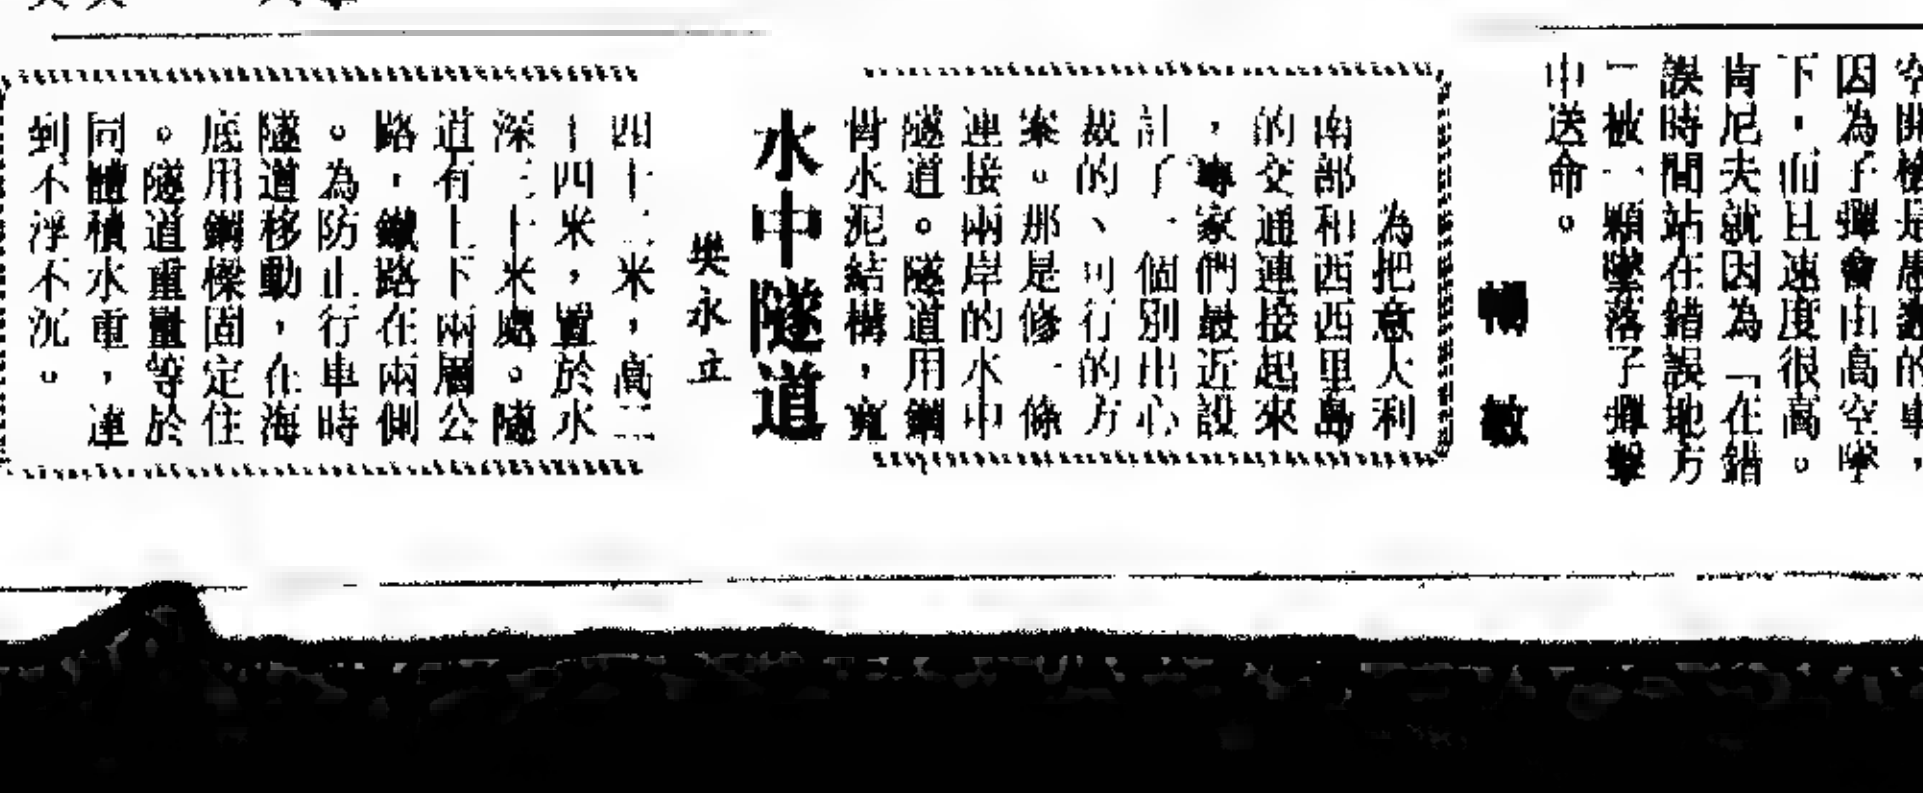 因為了彈會由高空墜
下,而且速度很高。
肯尼夫就因為「在錯
誤時間站在錯誤地方
」被一顆墜落子彈擊
中送命。
暢 敏
為把意大利
南部和西西里島
的交通連接起來
,專家們最近設
計了一個別出心
裁的、可行的方
案。那是修一條
連接兩岸的水中
隧道。隧道用鋼
骨水泥結構,寬
水中隧道
樊永立
四十二米,高二
十四米,置於水
深三十米處。隧
道有上下兩層公
路,鐵路在兩側
。為防止行車時
隧道移動,在海
底用鋼樑固定住
。隧道重量等於
同體積水重,達
到不浮不沉。